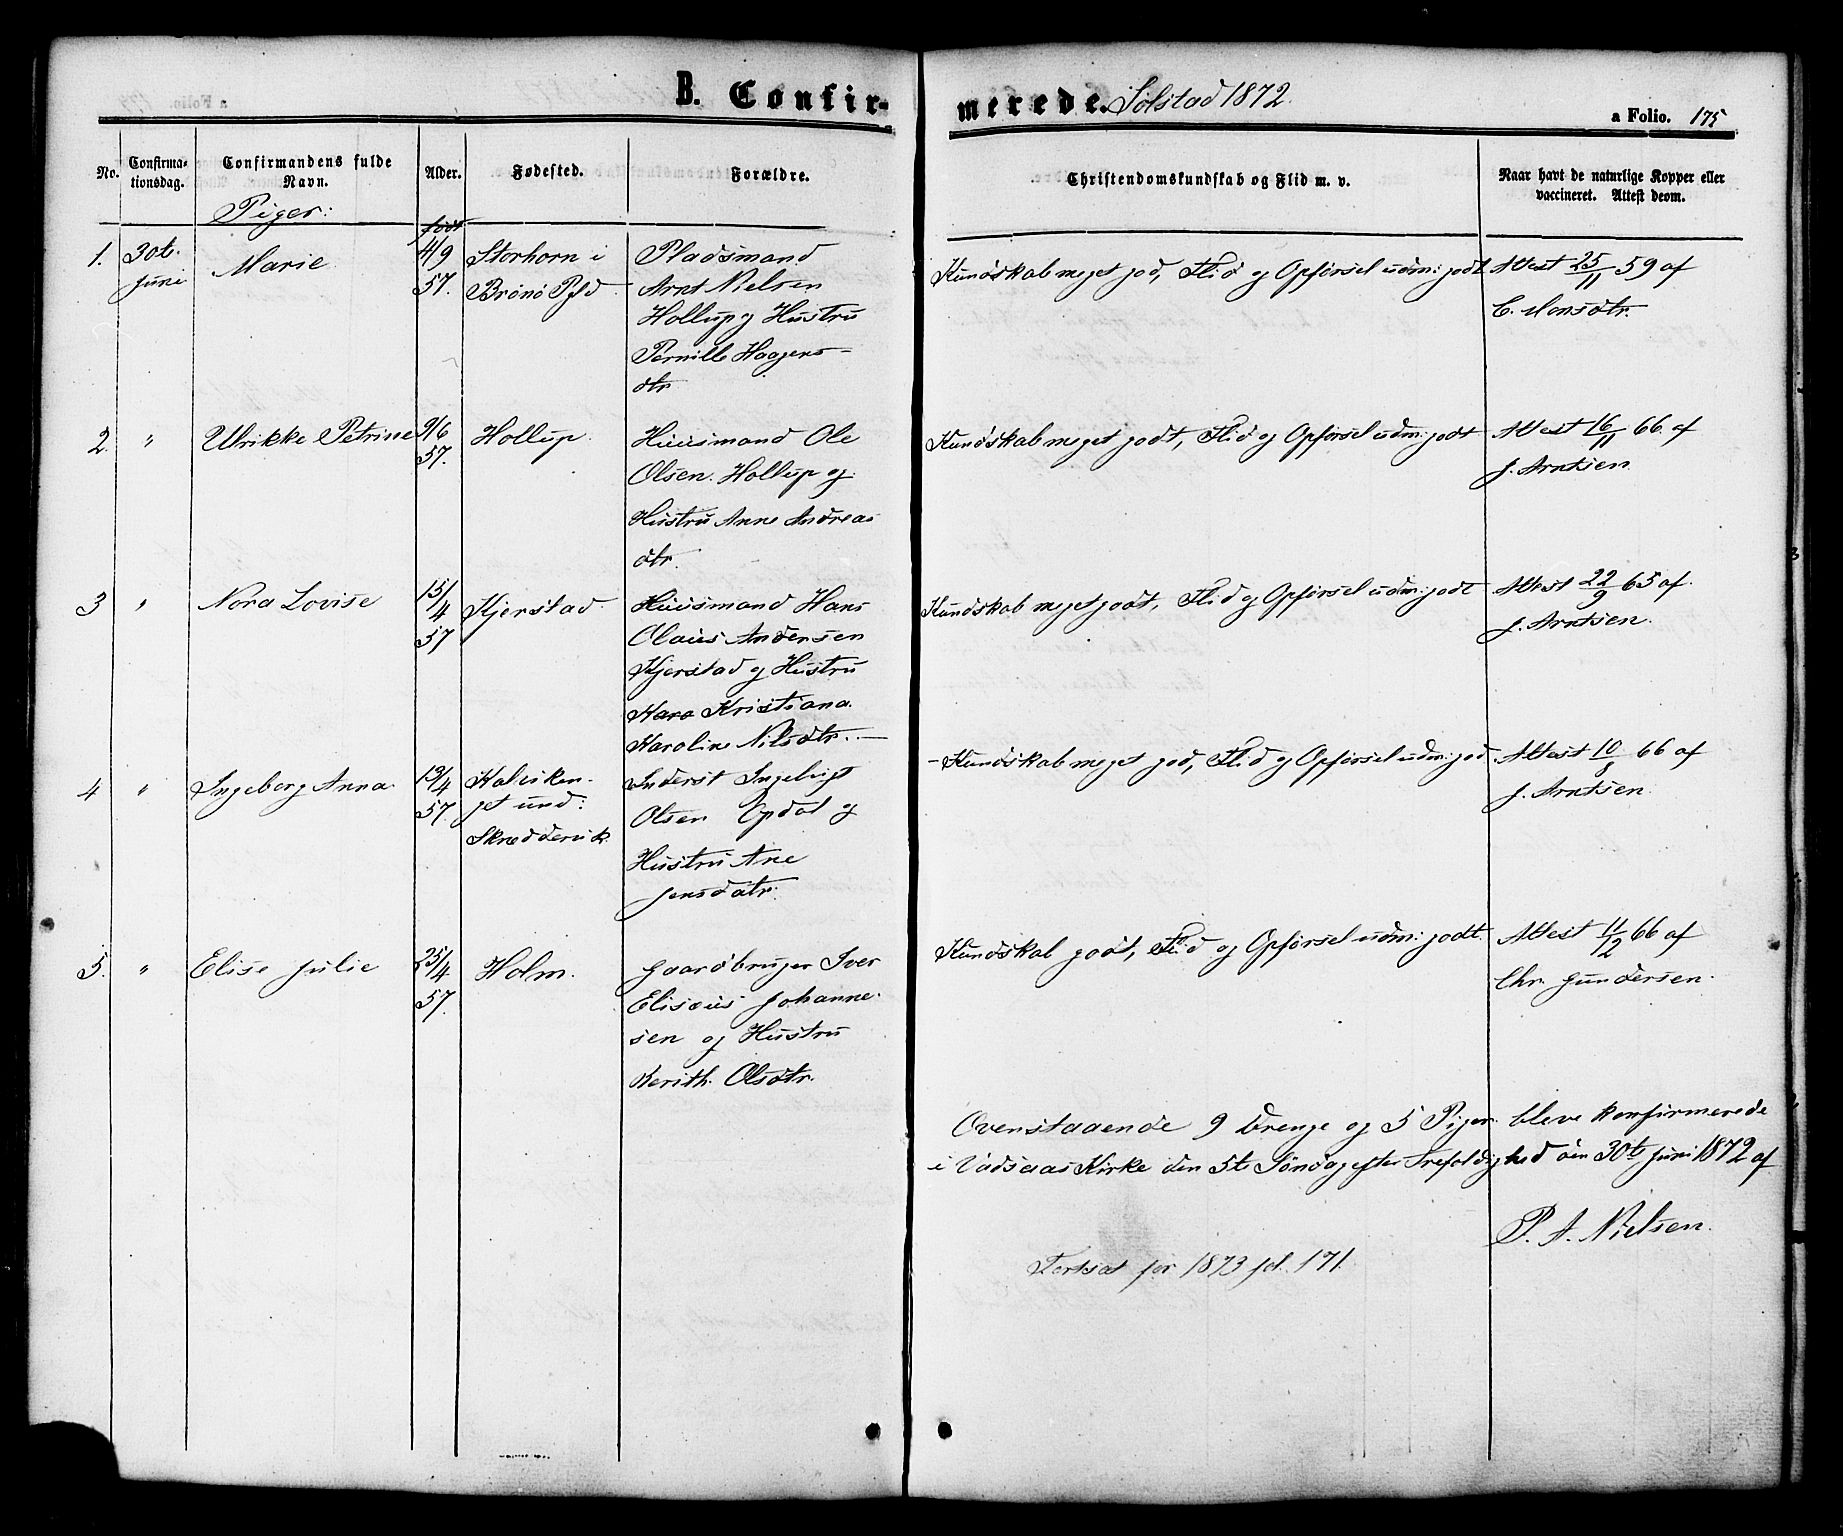 B. Confirmerede. Solstad 1872.
a Folio. 175
No.
Confirmationsdag.
Confirmandens fulde Navn.
Alder.
Fødested.
Forældre.
Christendomskundskab og Flid m. v.
Naar havt de naturlige Kopper eller vaccineret. Attest derom.
Piger:
født
1.
30te Juni
Marie
4/9 57.
Storhorn i
Brønø Pgld
Pladsmand
Arnt Nielsen
Hollup og Hustru
Pernille Haagens-
dtr
Kundskab meget god, Flid og Opførsel udm: godt
Attest 25/11 59 af
C. Monsdtr.
2.
"
Ulrikke Petrine
9/6 57.
Hollup.
Huusmand Ole
Olsen Hollup og
Hustru Anne Andreas
dtr.
Kundskab meget godt, Flid og Opførsel udm: godt
Attest 16/11 66 af
J. Arntsen
3
"
Nora Lovise
15/4 57
Kjerstad
Huusmand Hans
Olaus Andersen
Kjerstad og Hustru
Kara Kristiana
Karoline Nilsdtr.
Kundskab meget godt, Flid og Opførsel udm: godt
Attest 22/9 65 af
J. Arntsen.
4
"
Ingeborg Anna
19/4 57
get und:
Inderst Ingebrigt
Olsen Opdal og
Hustru Ane
Jensdatr.
- Kundskab meget god, Flid og Opførsel udm: god
Attest 10/8 66 af
J. Arntsen
5.
"
Elise Julie
25/4 57.
Holm.
Gaardbruger Iver
Elisæus Johanne-
sen og Hustru
Berith Olsdtr.
Kundskab godt, Flid og Opførsel udm: godt.
Attest 11/2 66 af
Chr. Gundersen.
Ovenstaaende 9 Drenge og 5 Piger bleve konfirmerede
i Vadsaas Kirke den 5te Søndag efter Trefoldighed den 30te Juni 1872 af
P. A. Nielsen.
Fortsat for 1873 fol. 171.